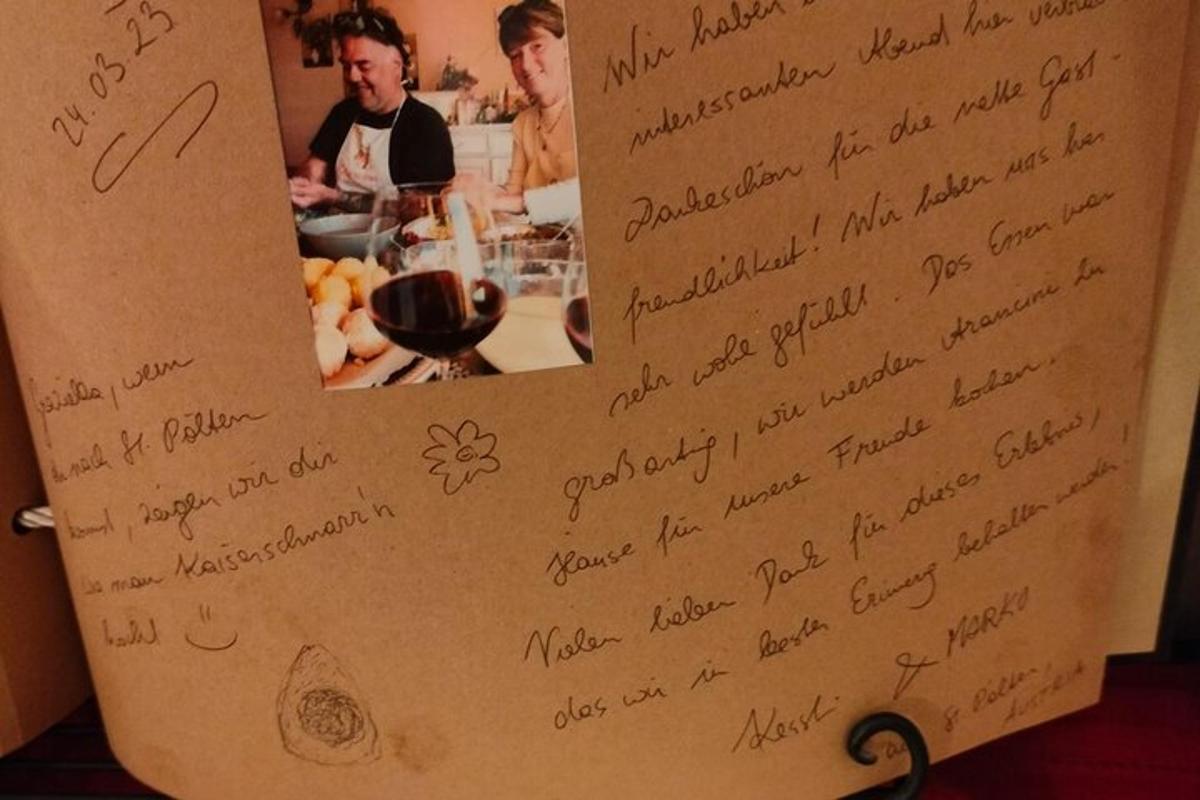 24.03.23
Wir haben
interessanten Abend hier
Dankeschön für die nette Gast-
freundlichkeit! Wir haben uns hier
sehr wohl gefühlt. Das Essen war
großartig, wir werden Arancini zu
Hause für unsere Freunde kochen.
Vielen lieben Dank für dieses Erlebnis,
das wir in bester Erinnerung behalten werden!
& MARKO
aus St. Pölten,
AUSTRIA
, wenn
du nach St. Pölten
kommst, zeigen wir dir
wie man Kaiserschmarr'n
kocht